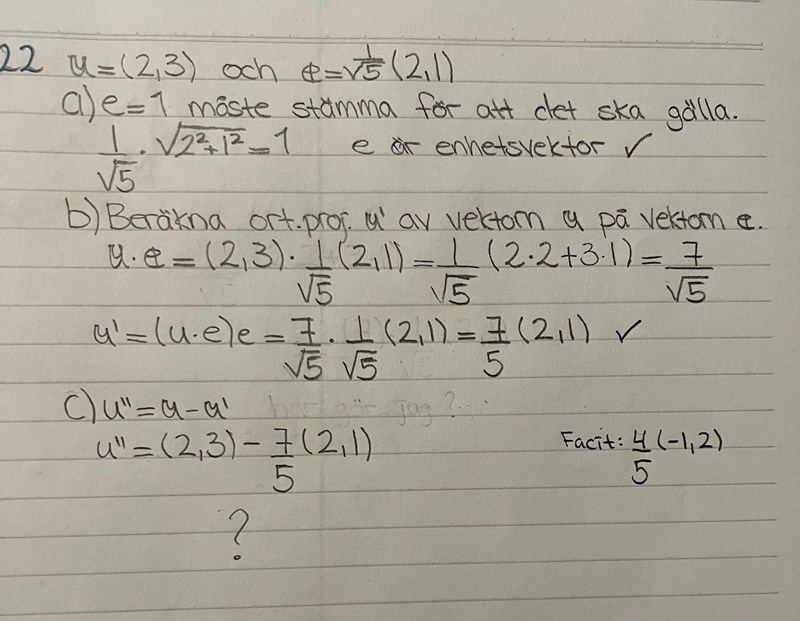 22 u=(2,3) och e=1/√5 (2,1)
a) e=1 måste stämma för att det ska gälla.
1/√5 · √2²+1² = 1 e är enhetsvektor ✓
b) Beräkna ort.proj. u' av vektorn u på vektorn e.
u·e = (2,3) · 1/√5 (2,1) = 1/√5 (2·2+3·1) = 7/√5
u' = (u·e)e = 7/√5 · 1/√5 (2,1) = 7/5 (2,1) ✓
c) u'' = u - u' hur gör jag?
u'' = (2,3) - 7/5 (2,1) Facit: 4/5 (-1,2)
?